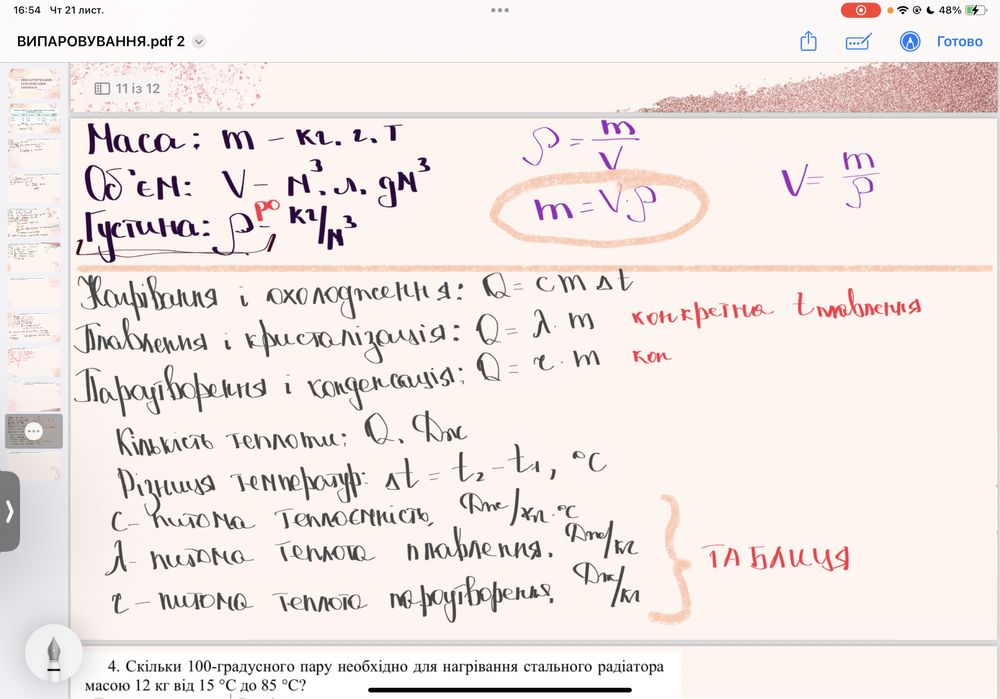 16:54 Чт 21 лист.
48%
ВИПАРОВУВАННЯ.pdf 2
Готово
11 із 12
Маса: m – кг. г. т
ρ = m/V
V = m/ρ
Об'єм: V – м³. л. дм³
m = V·ρ
Густина: ρ – ро кг/м³
Нагрівання і охолодження: Q = cmΔt
Плавлення і кристалізація: Q = λ·m конкретна t плавлення
Пароутворення і конденсація: Q = r·m кон
Кількість теплоти: Q, Дж
Різниця температур: Δt = t₂ – t₁, °C
c – питома теплоємність, Дж/кг·°C
λ – питома теплота плавлення. Дж/кг
ТАБЛИЦЯ
r – питома теплота пароутворення, Дж/кг
4. Скільки 100-градусного пару необхідно для нагрівання стального радіатора
масою 12 кг від 15 °C до 85 °C?